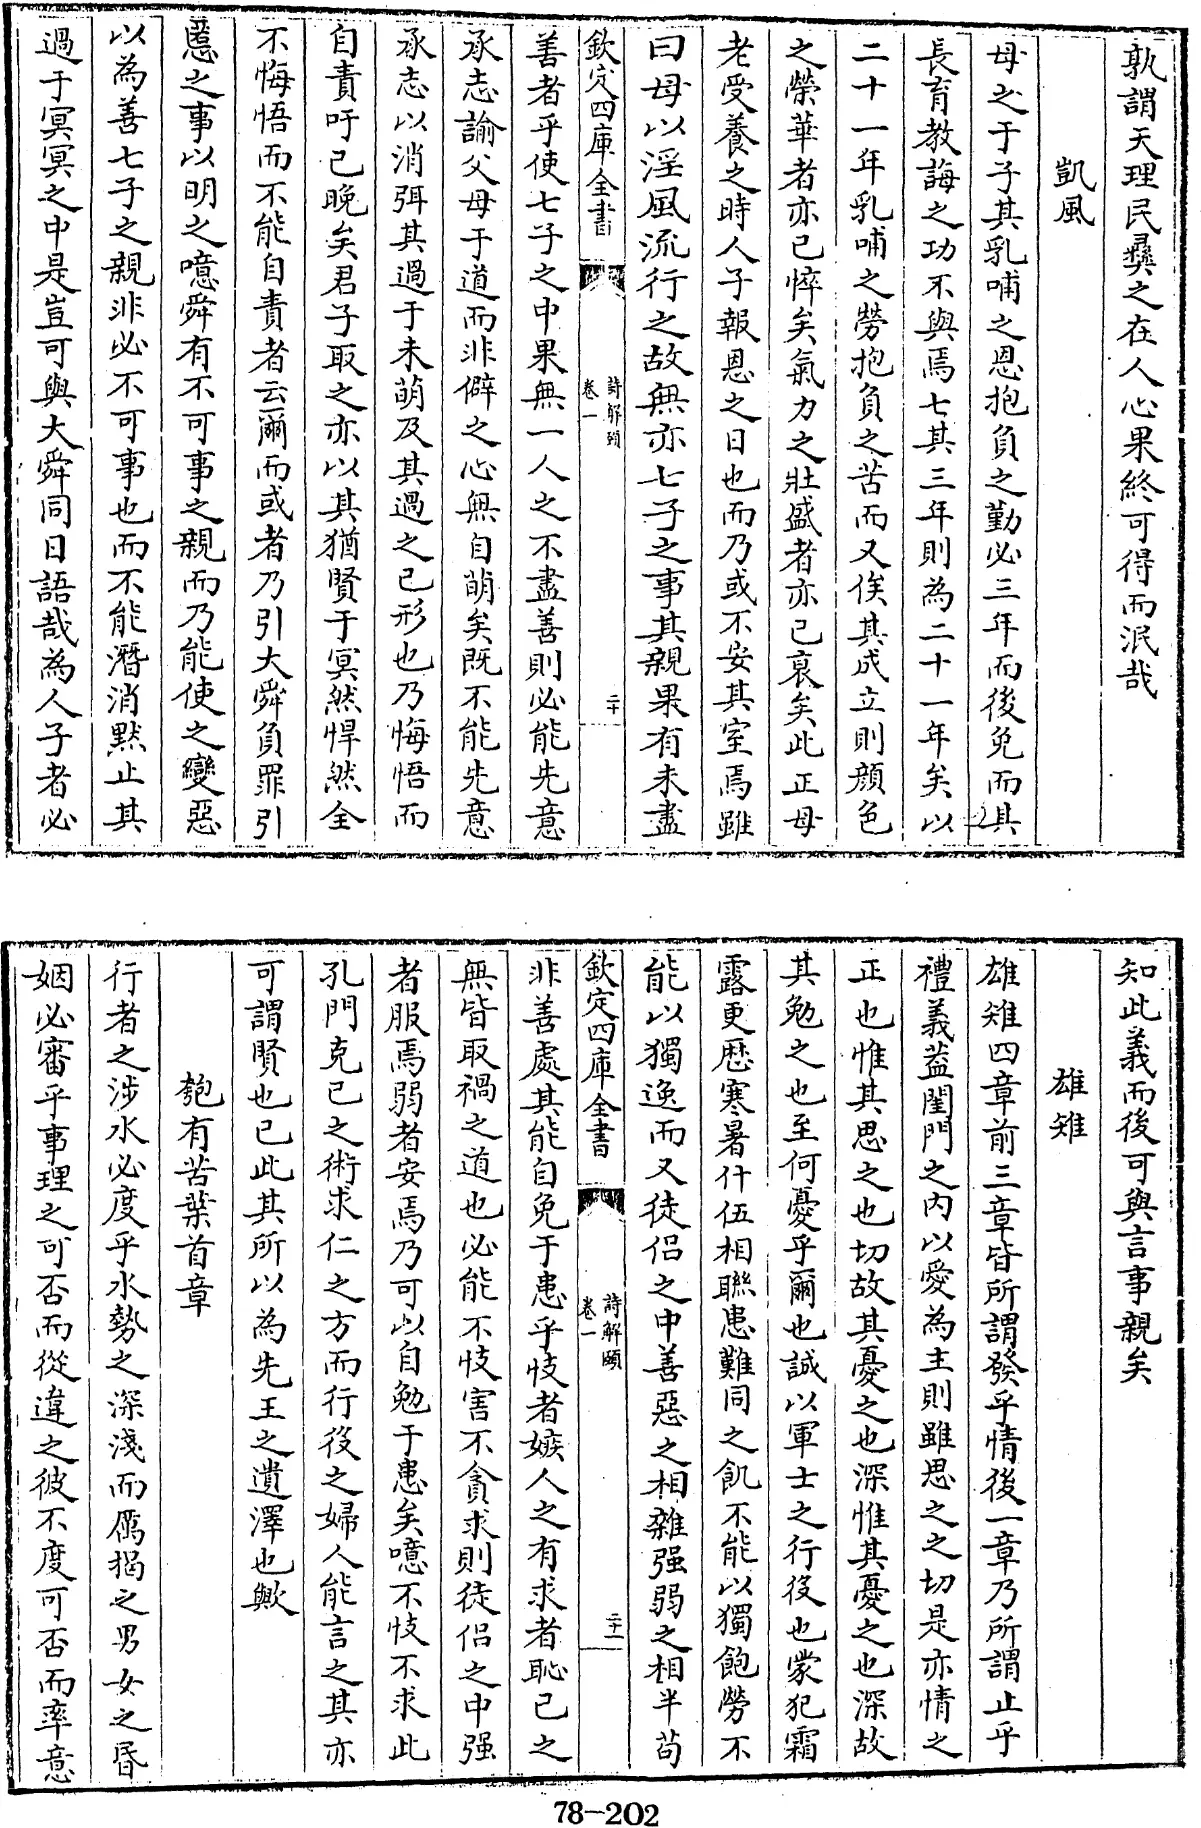 孰謂天理民彝之在人心果終可得而泯哉
凱風
母之于子其乳哺之恩抱負之勤必三年而後免而其
長育教誨之功不與焉七其三年則為二十一年矣以
二十一年乳哺之勞抱負之苦而又俟其成立則顔色
之榮華者亦已悴矣氣力之壯盛者亦已衰矣此正母
老受養之時人子報恩之日也而乃或不安其室焉雖
曰母以淫風流行之故無亦七子之事其親果有未盡
欽定四庫全書
詩解頤
卷一
二十
善者乎使七子之中果無一人之不盡善則必能先意
承志諭父母于道而非僻之心無自萌矣既不能先意
承志以消弭其過于未萌及其過之已形也乃悔悟而
自責吁已晚矣君子取之亦以其猶賢于冥然悍然全
不悔悟而不能自責者云爾而或者乃引大舜負罪引
慝之事以明之噫舜有不可事之親而乃能使之變惡
以為善七子之親非必不可事也而不能潛消黙止其
過于冥冥之中是豈可與大舜同日語哉為人子者必
知此義而後可與言事親矣
雄雉
雄雉四章前三章皆所謂發乎情後一章乃所謂止乎
禮義葢閨門之内以愛為主則雖思之之切是亦情之
正也惟其思之也切故其憂之也深惟其憂之也深故
其勉之也至何憂乎爾也誠以軍士之行役也蒙犯霜
露更歴寒暑什伍相聯患難同之飢不能以獨飽勞不
能以獨逸而又徒侣之中善惡之相雜强弱之相半苟
欽定四庫全書
詩解頤
卷一
二十一
非善處其能自免于患乎忮者嫉人之有求者恥已之
無皆取禍之道也必能不忮害不貪求則徒侣之中强
者服焉弱者安焉乃可以自勉于患矣噫不忮不求此
孔門克已之術求仁之方而行役之婦人能言之其亦
可謂賢也已此其所以為先王之遺澤也歟
匏有苦葉首章
行者之涉水必度乎水勢之深淺而厲揭之男女之昏
姻必審乎事理之可否而從違之彼不度可否而率意
78-202